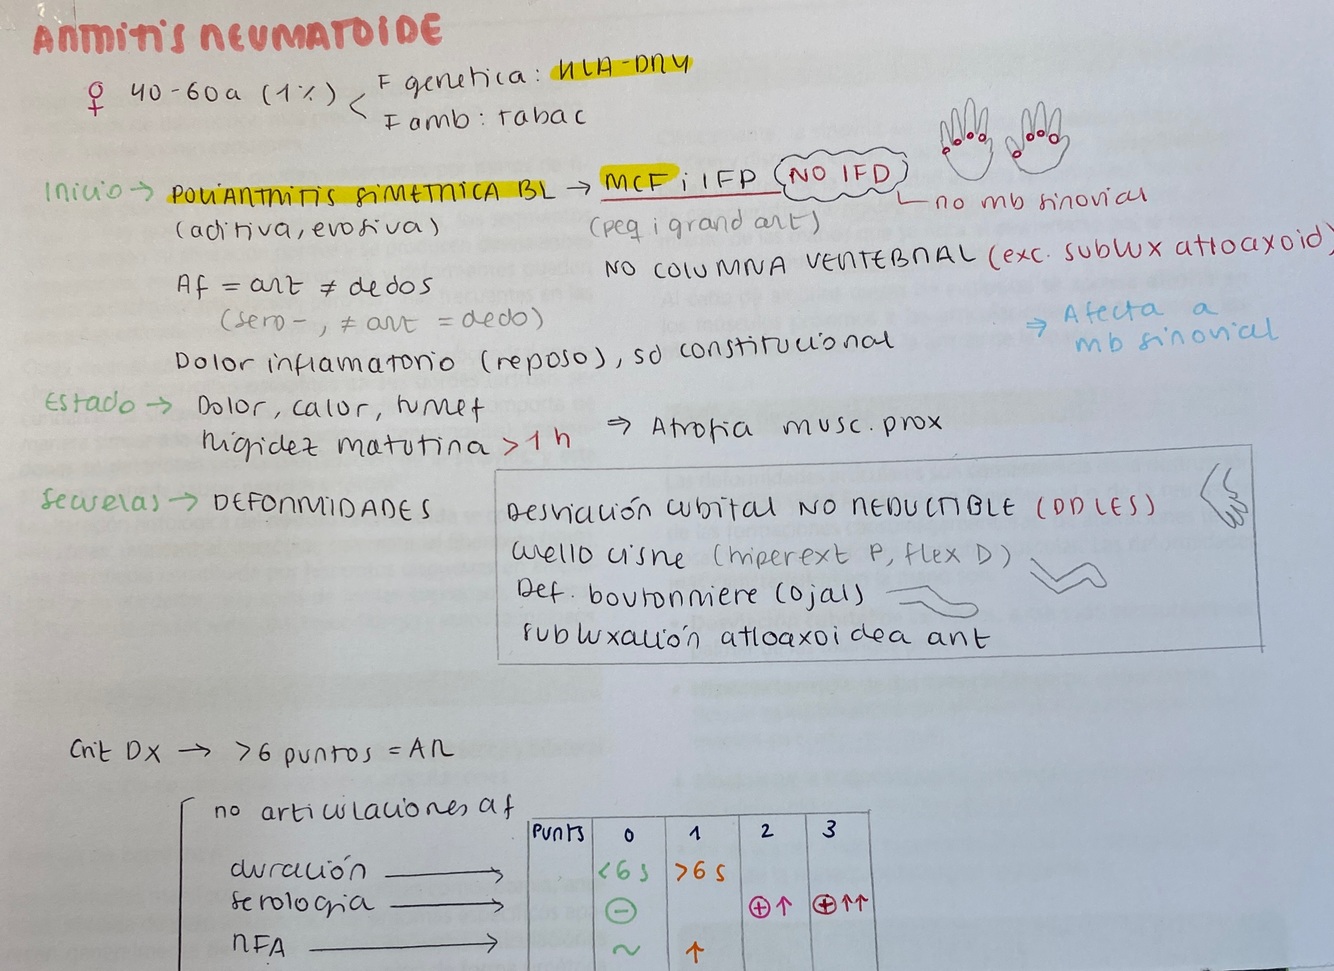 ARTRITIS REUMATOIDE
♀ 40-60a (1%) < F genetica: HLA-DR4
F amb: tabac
Inicio → POLIARTRITIS SIMETRICA BL → MCF i IFP (NO IFD)
no mb sinovial
(aditiva, erosiva) (peq i grand art)
NO COLUMNA VERTEBRAL (exc. sublux atloaxoid)
Af = art ≠ dedos
(sero-, ≠ art = dedo)
⇒ Afecta a
mb sinovial
Dolor inflamatorio (reposo), sd constitucional
Estado → Dolor, calor, tumef
Rigidez matutina >1h ⇒ Atrofia musc. prox
Secuelas → DEFORMIDADES
Desviación cubital NO REDUCTIBLE (DD LES)
cuello cisne (hiperext P, flex D)
Def. boutonniere (ojal)
subluxación atloaxoidea ant
Crit DX → >6 puntos = AR
no articulaciones af
Punts 0 1 2 3
duración → <6s >6s
serologia → ⊖ ⊕↑ ⊕↑↑
RFA → ~ ↑